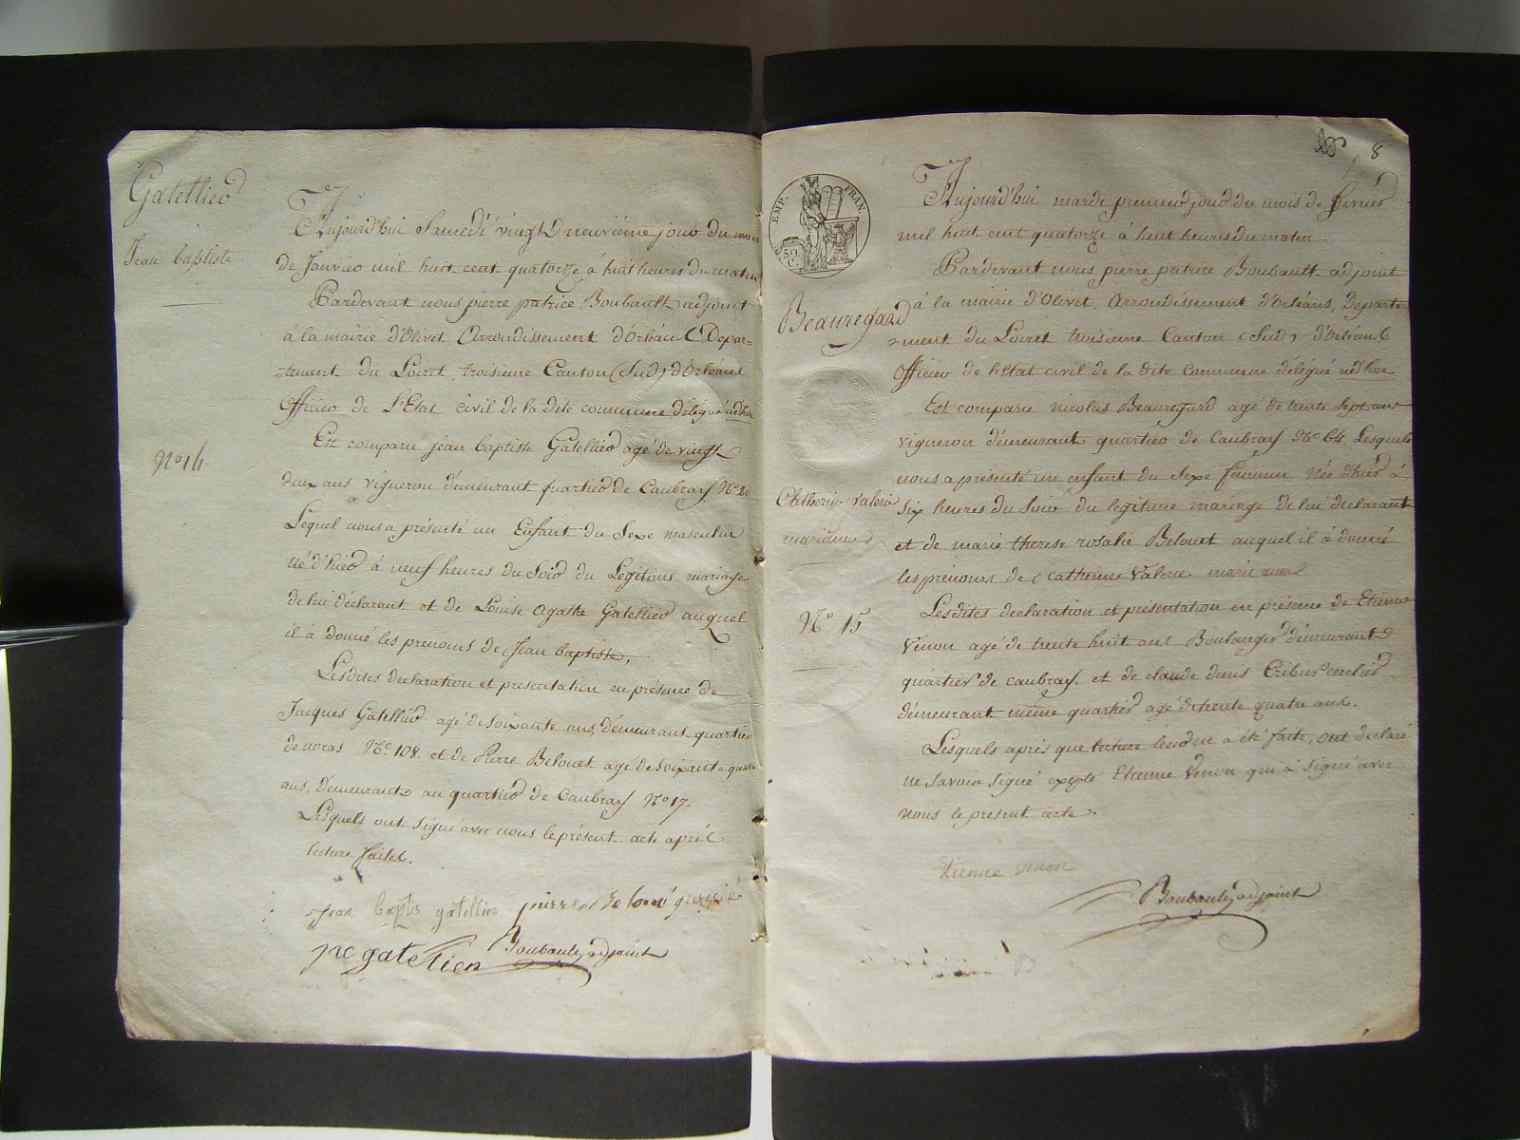 Gatellier
Jean baptiste
N° 14
Aujourd'hui Samedi vingt neuvième jour du mois
de Janvier mil huit cent quatorze à huit heures du matin
Pardevant nous pierre patrice Boubault adjoint
à la mairie d'Olivet Arrondissement d'Orléans Depar=
=tement du Loiret, troisieme Canton (Sud) d'Orléans
Officier de l'Etat Civil de la dite commune délégué
Est comparu jean baptiste Gatellier agé de vingt
deux ans vigneron demeurant quartier de Caubray N° 20
Lequel nous a présenté un Enfant du Sexe masculin
né d'hier à neuf heures du Soir du Légitime mariage
de lui déclarant et de Louise Agathe Gatellier auquel
il à donné les prenoms de Jean baptiste.
Lesdites declaration et presentation en présence de
Jacques Gatellier agé de soixante ans, demeurant quartier
de N° 108. et de Pierre Belouet agé de soixante quatre
ans, Demeurant au quartier de Caubray N° 17.
Lesquels ont signé avec nous le présent acte après
lecture faite.
Jean bapts gatellier pierre
gatellien Boubault adjoint
8
EMP. FRAN.
50 C.
Beauregard
Catherine Valerie
marianne
N° 15
Aujourd'hui mardi premier jour du mois de fevrier
mil huit cent quatorze à huit heures du matin
Pardevant nous pierre patrice Boubault adjoint
à la mairie d'Olivet, Arrondissement d'Orléans, Departe-
-ment du Loiret troisieme Canton (Sud) d'Orleans
Officier de l'Etat civil de la dite Commune délégué
Est comparu nicolas Beauregard agé de trente sept ans
vigneron demeurant quartier de Caubray N° 64 Lesquels
nous a présenté un enfant du Sexe féminin née d'hier à
six heures du soir du legitime mariage de lui declarant
et de marie therese rosalie Belouet auquel il à donné
les prenoms de Catherine Valerie
Lesdites declaration et présentation en présence de Etienne
Venon agé de trente huit ans Boulanger demeurant
quartier de caubray. et de claude denis
demeurant même quartier agé de trente quatre ans.
Lesquels après que lecture leur a été faite, ont déclaré
ne savoir signé excepté Etienne Venon qui à signé avec
nous le present acte.
Etienne venon
Boubault adjoint